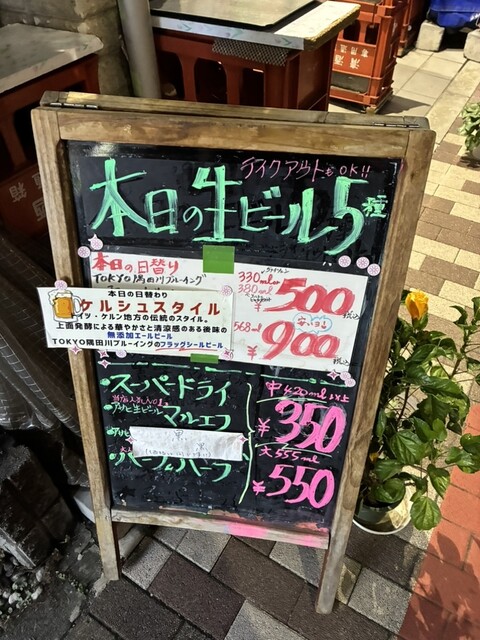 テイクアウトもOK!!
本日の生ビール5種
本日の日替り
TOKYO隅田川ブルーイング
本日の日替わり
ケルシュスタイル
イツ・ケルン地方の伝統のスタイル。
上面発酵による華やかさと清涼感のある後味の
無添加エールビール
TOKYO隅田川ブルーイングのフラッグシールビール
330ml
380ml
¥500税込
568ml
安いヨ!
¥900税込
・スーパードライ
アサヒ生ビール マルエフ
・ハーフ&ハーフ
中420ml以上
¥350
大555ml
¥550